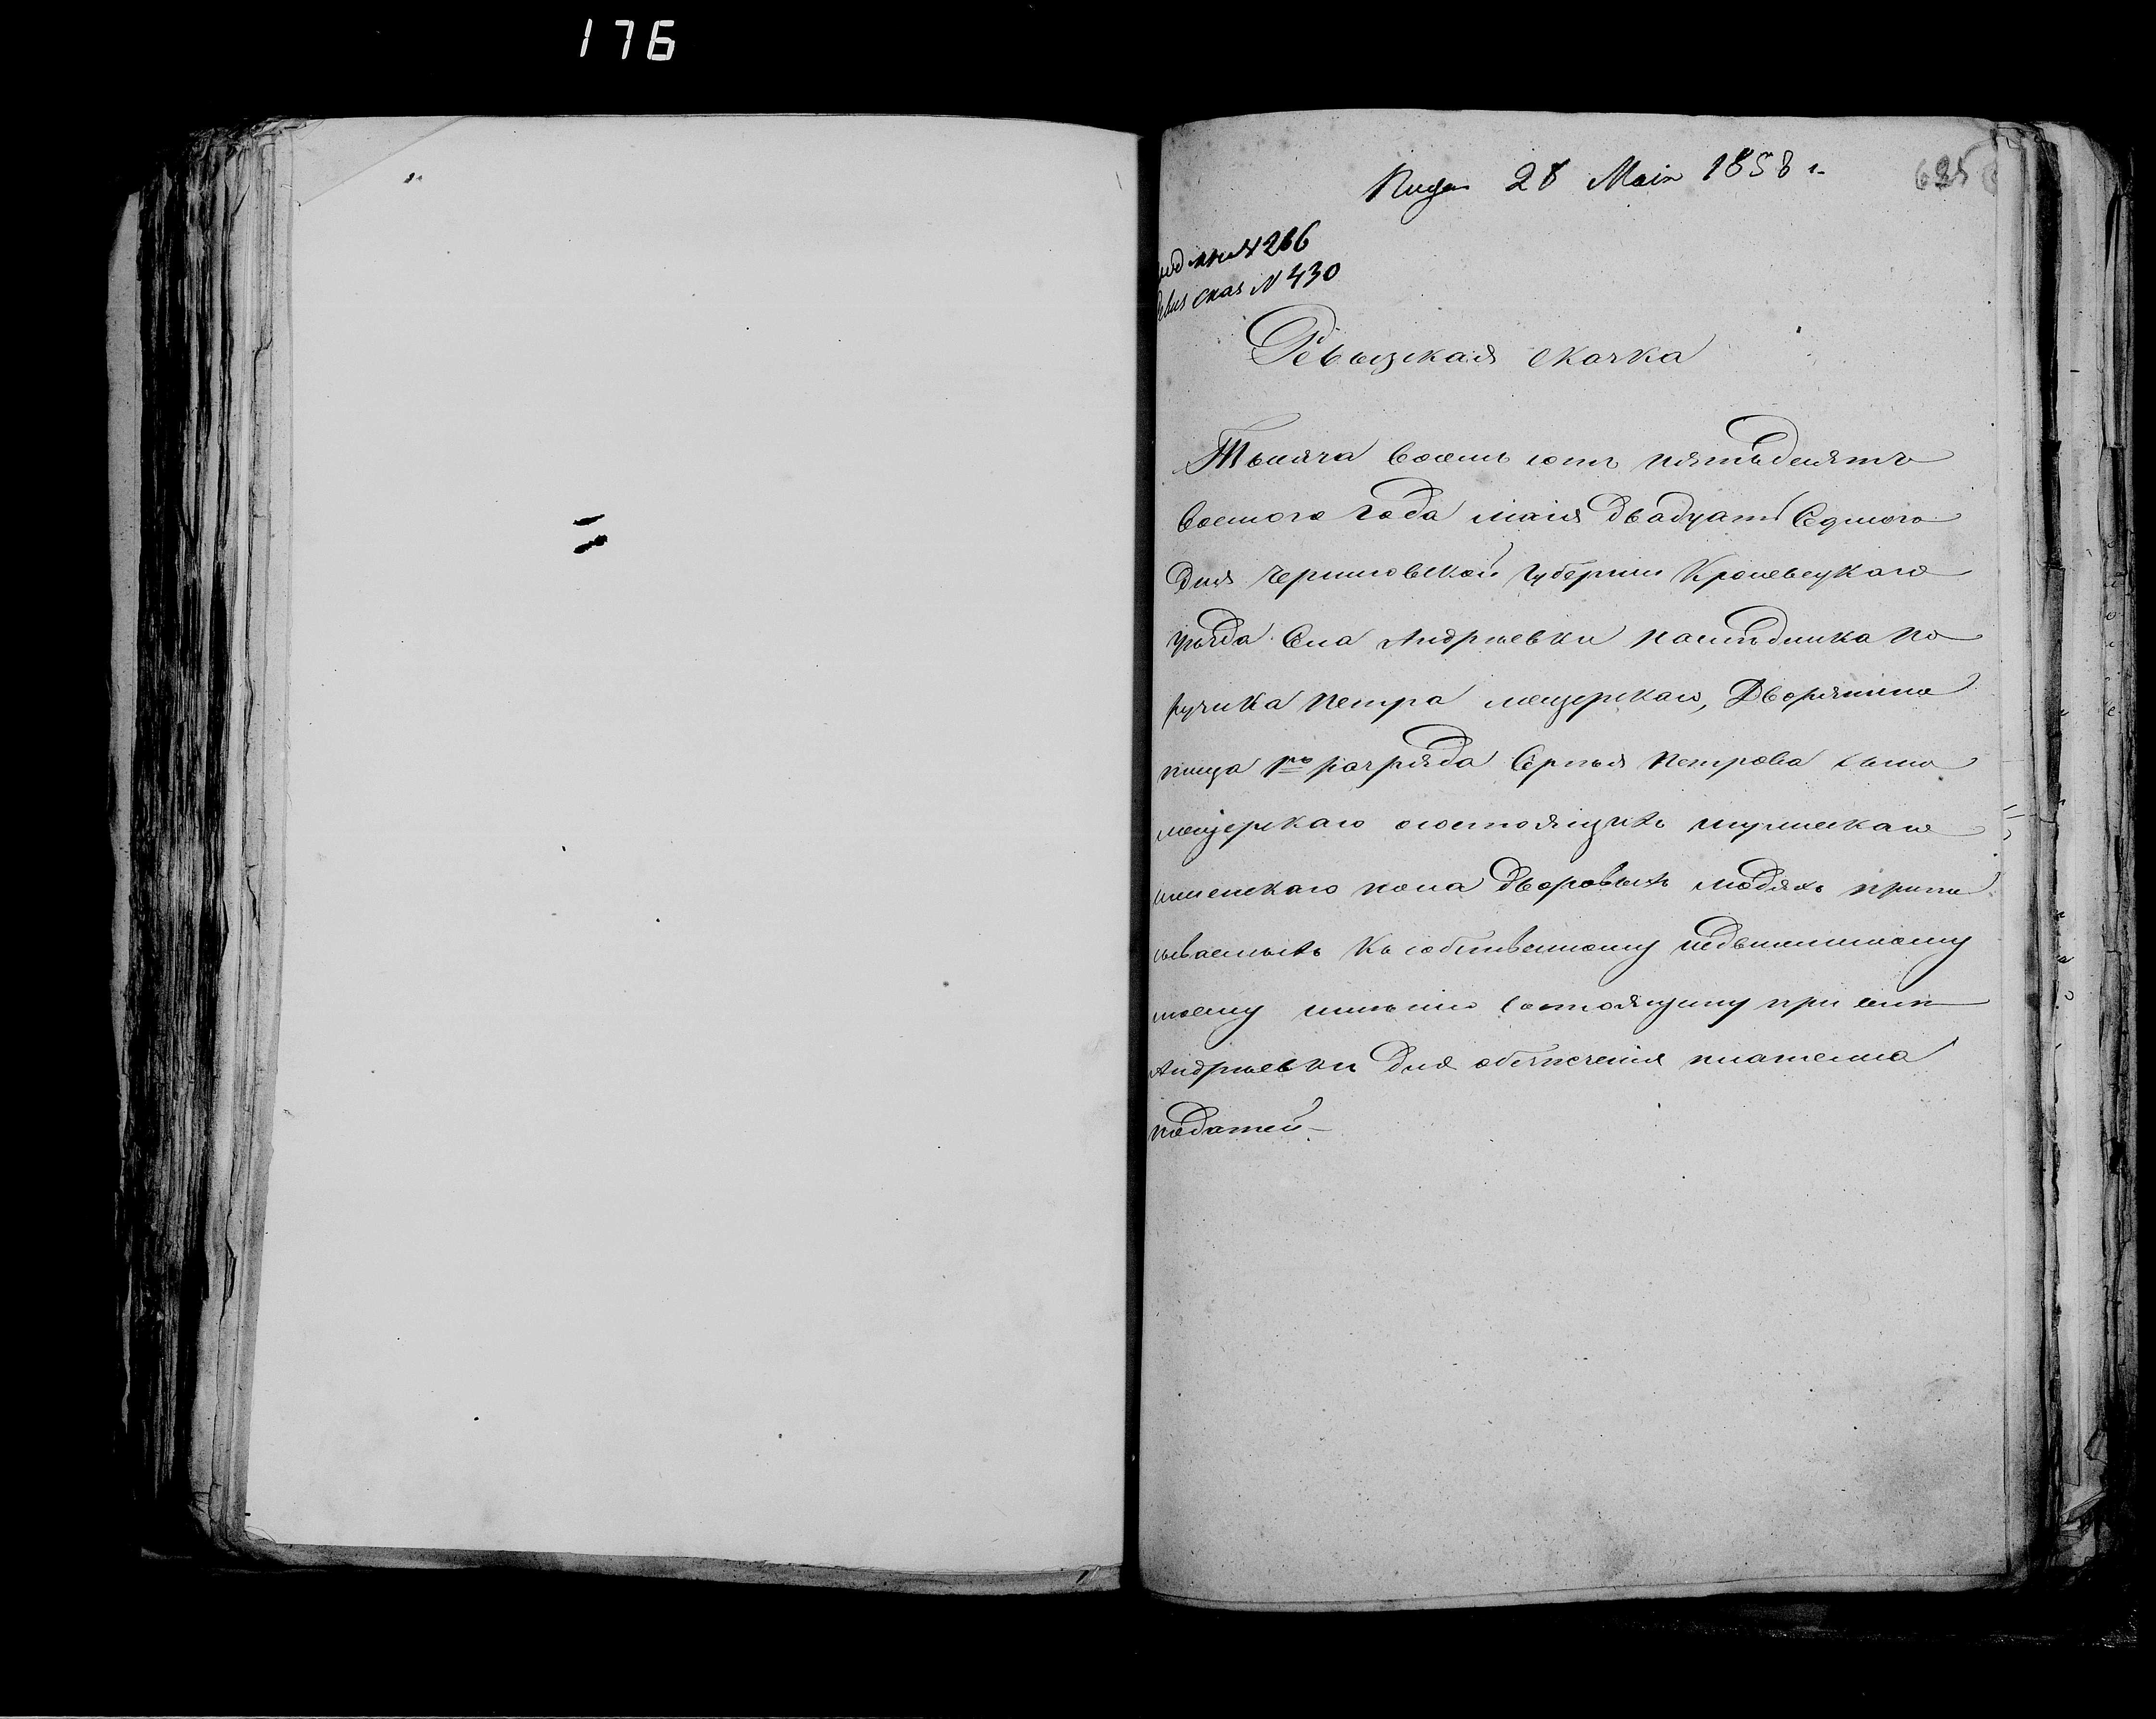 176
28 Маія 1858 г.
№ 266
Ревиз сказ № 430
Ревизская скаска
Тысяча восемь сотъ пятьдесятъ
восмого года маия двадцать седмого
дня черниговской губерніи Кролевецкаго
уѣзда села Андрѣевки наслѣдника по
ручика Петра мещерскаго, Дворянина
разряда Сергѣя Петрова сына
мещерскаго о состоящихъ мужескаго
женскаго пола дворовыхъ людяхъ припи
сываемыхъ къ собственному недвижимому
моему имѣнію состоящему при селѣ
Андрѣевки для обезпеченія платежа
податей